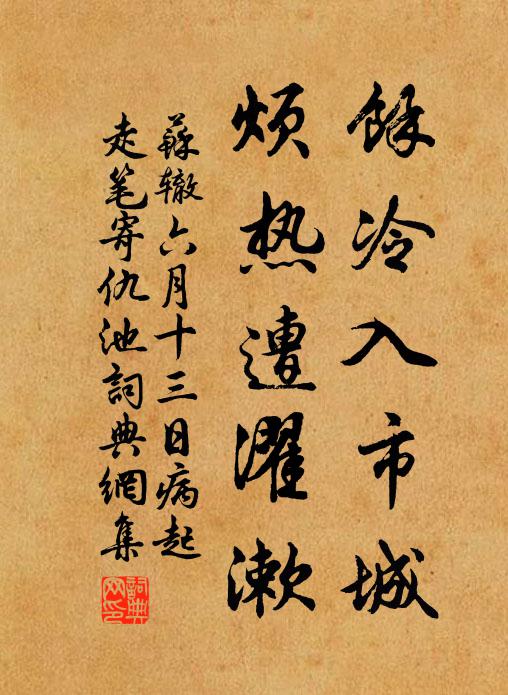 餘冷入市城
烦热遭濯漱
蘇辙六月十三日病起
走笔寄仇池詞典網集
詞典網印